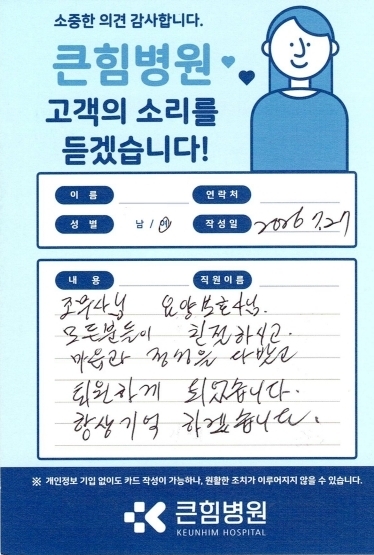 소중한 의견 감사합니다.
큰힘병원
고객의 소리를
듣겠습니다!
이 름 연락처
성 별 남 / 여 작성일 2026 7.27
내 용 직원이름
조무사님 요양보호사님.
모든분들이 친절하시고.
마음과 정성을 다받고
퇴원하게 되었습니다.
항상기억 하겠습니다.
※ 개인정보 기입 없이도 카드 작성이 가능하나, 원활한 조치가 이루어지지 않을 수 있습니다.
큰힘병원
KEUNHIM HOSPITAL